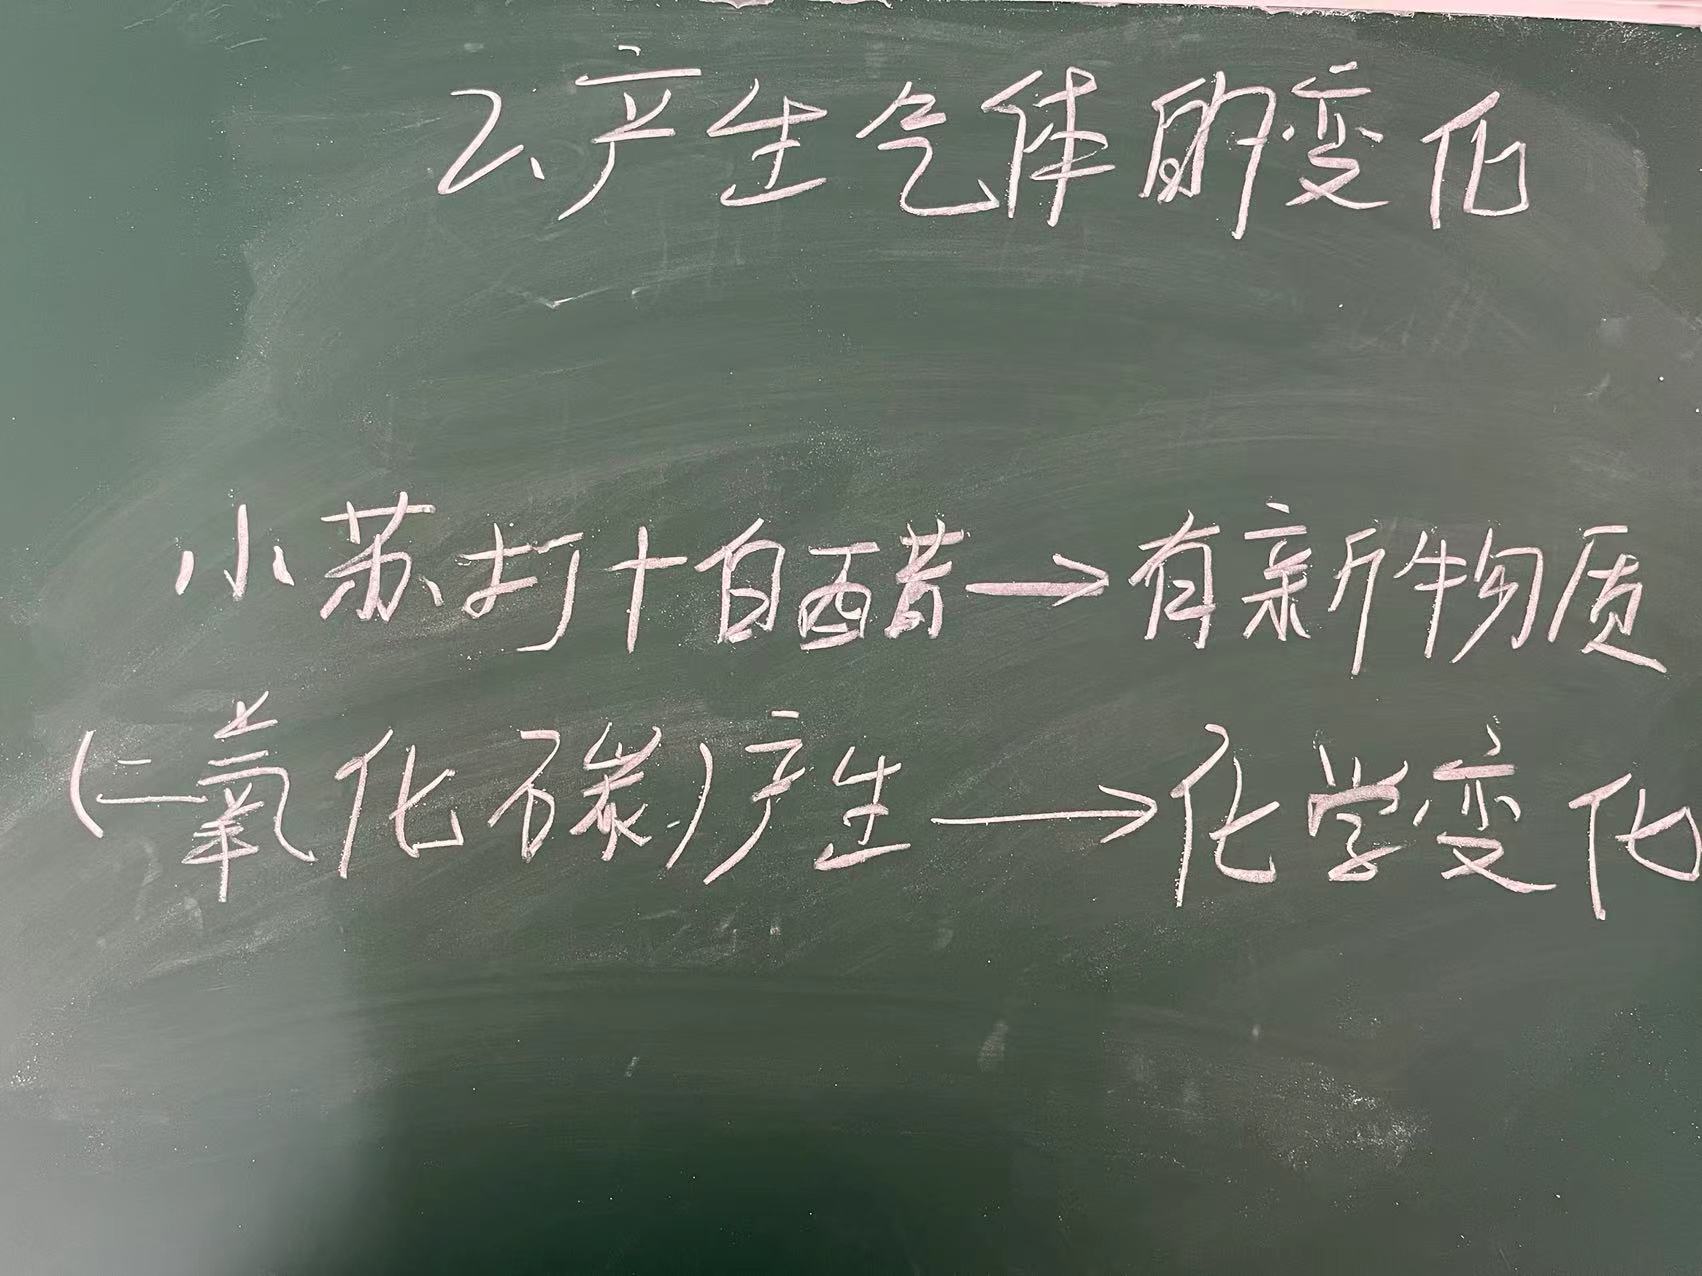 2、产生气体的变化
小苏打+白醋→有新物质
(二氧化碳)产生→化学变化